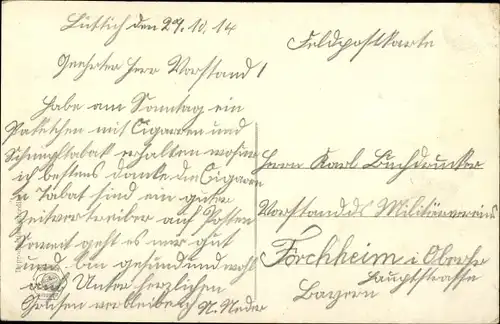 Lüttich den 29.10.14
Feldpostkarte
Geehrter Herr Vorstand!
Habe am Sonntag ein
Paketchen mit Cigarren und
Schnupftabak erhalten wofür
ich bestens danke die Cigaren
u Tabat sind ein guter
Zeitvertreiber auf Posten
Somit geht es mir gut
und bin gesund und wohl
auf Unter herzlichen
Grüßen verbleibe ich N. Neder
Herrn Karl Buchdrucker
Vorstand ds Militärvereins
Forchheim i Oberfr
Hauptstrasse
Bayern